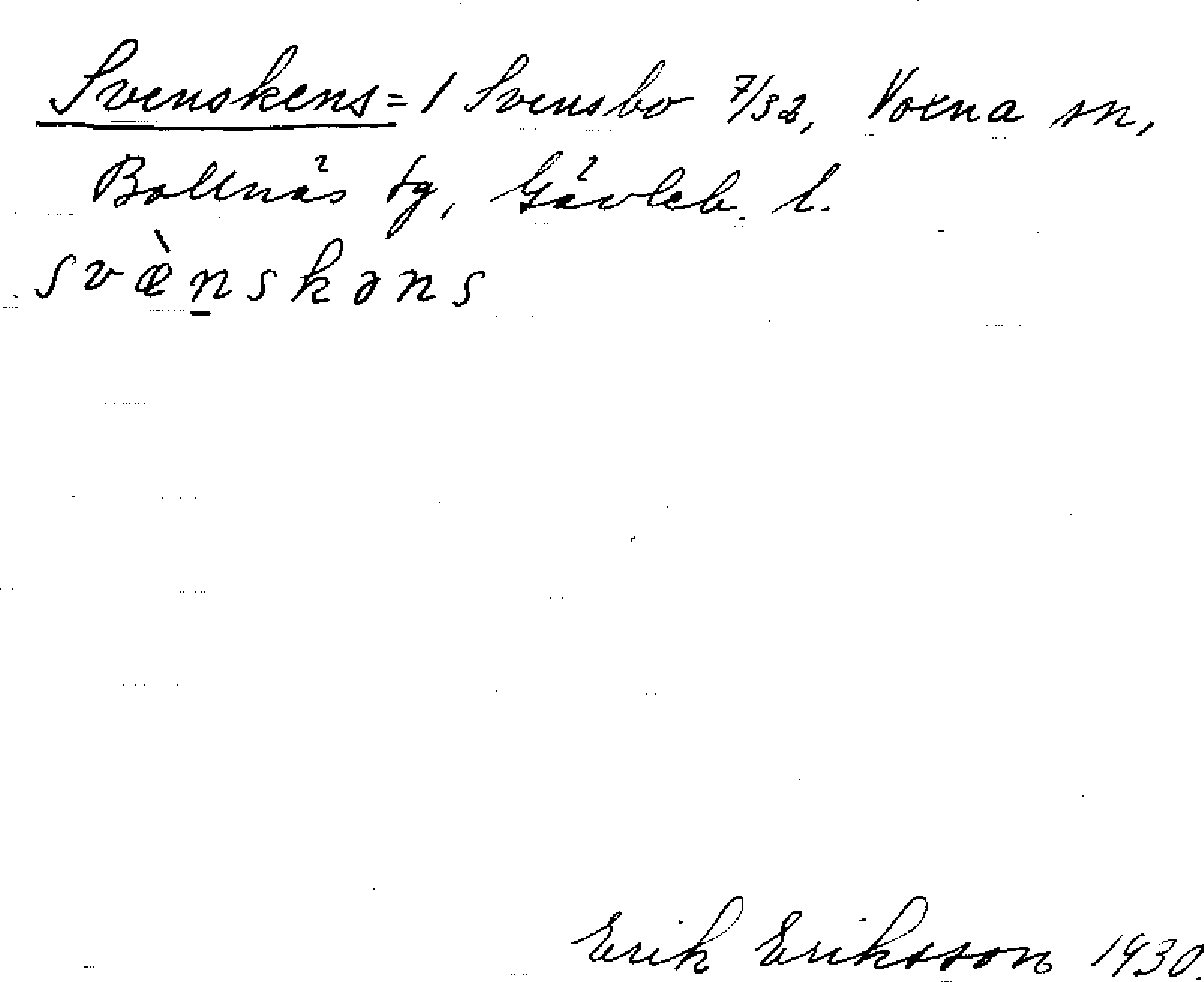 Svenskens = 1 Svensbo 7/32, Voxna sn,
Bollnäs tg, Gävleb. l.
svæ̀n̲skəns
Erik Eriksson 1930.